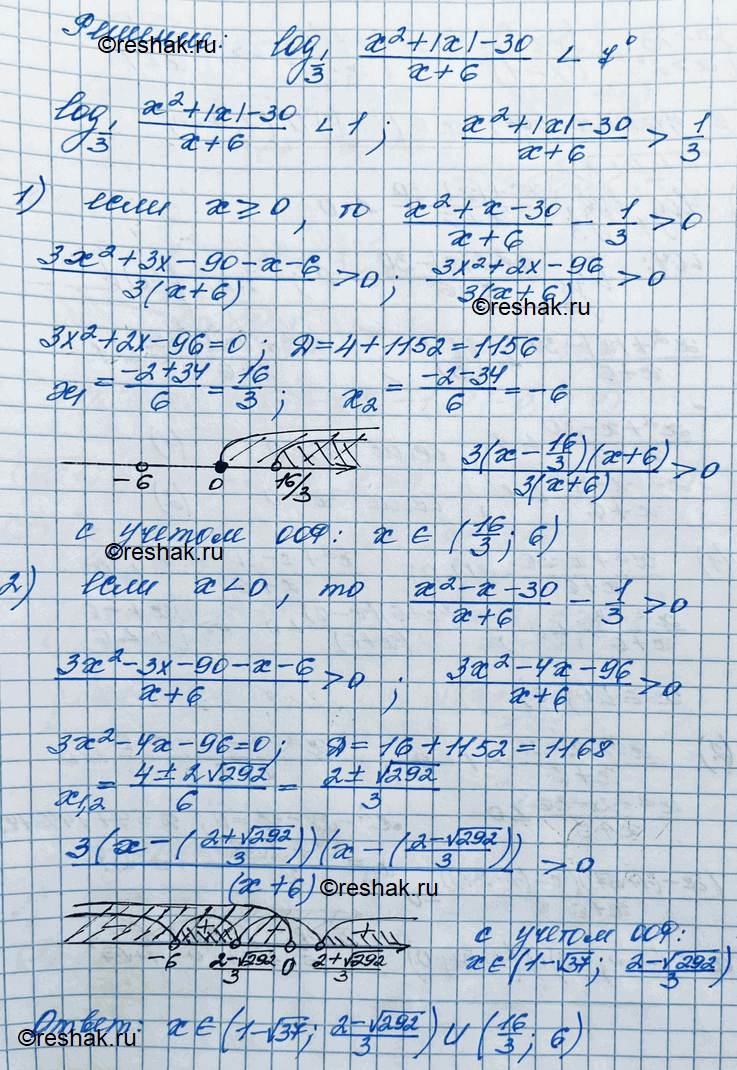 Решение: log_{1/3} (x²+|x|-30)/(x+6) < 7⁰
©reshak.ru
log_{1/3} (x²+|x|-30)/(x+6) < 1; (x²+|x|-30)/(x+6) > 1/3
1) если x ≥ 0, то (x²+x-30)/(x+6) - 1/3 > 0
(3x²+3x-90-x-6)/(3(x+6)) > 0; (3x²+2x-96)/(3(x+6)) > 0
©reshak.ru
3x²+2x-96=0; D=4+1152=1156
x₁ = (-2+34)/6 = 16/3; x₂ = (-2-34)/6 = -6
-6 0 16/3 (3(x-16/3)(x+6))/(3(x+6)) > 0
с учетом ООФ: x ∈ (16/3; 6)
©reshak.ru
2) если x < 0, то (x²-x-30)/(x+6) - 1/3 > 0
(3x²-3x-90-x-6)/(x+6) > 0; (3x²-4x-96)/(x+6) > 0
3x²-4x-96=0; D=16+1152=1168
x₁,₂ = (4±2√292)/6 = (2±√292)/3
(3(x-((2+√292)/3))(x-((2-√292)/3)))/(x+6) > 0
©reshak.ru
+ - +
-6 (2-√292)/3 0 (2+√292)/3
с учетом ООФ:
x ∈ (1-√37; (2-√292)/3)
Ответ: x ∈ (1-√37; (2-√292)/3) ∪ (16/3; 6)
©reshak.ru